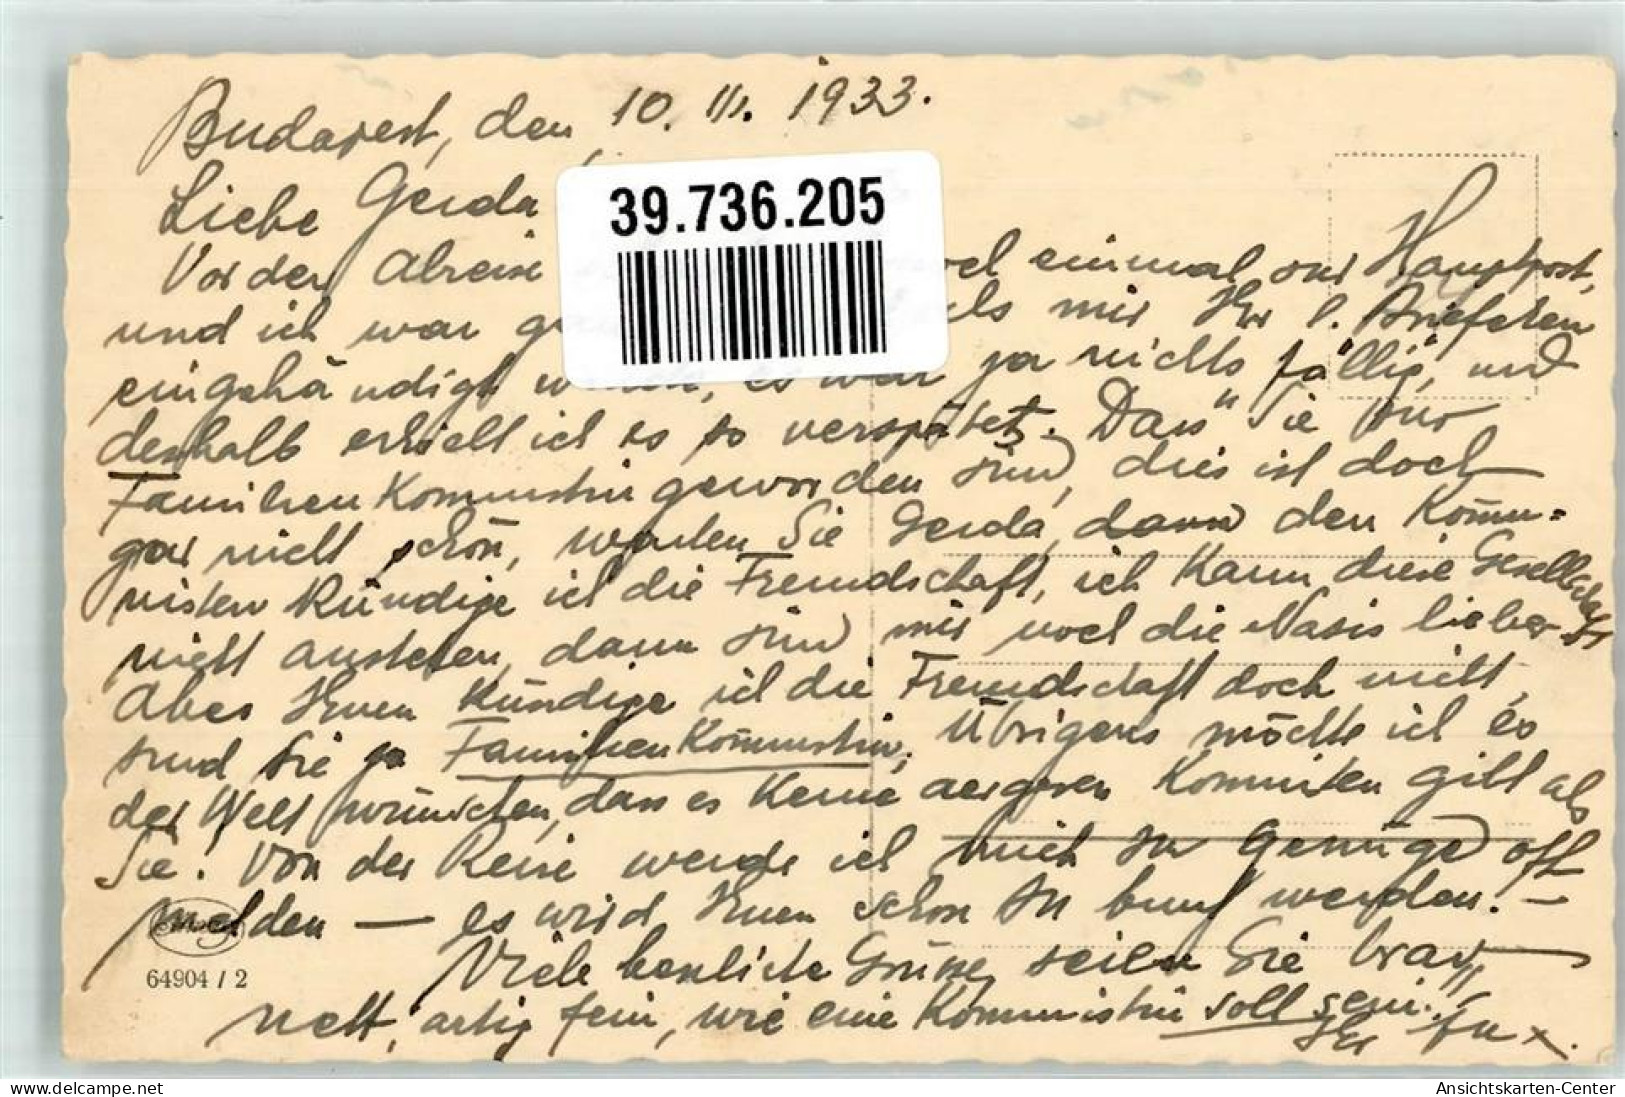 Budapest, den 10. III. 1933.
Liebe Gerda
39.736.205
Vor der Abreise einmal zur Hauptpost,
und ich war als mir Ihr l. Briefchen
eingehändigt es war ja nichts fällig, und
deshalb erhielt ich es so verspätet. Dass Sie nur
Familien Kommunistin geworden sind, dies ist doch
gar nicht schön, werden Sie Gerda, dann den Kommu=
nisten kündige ich die Freundschaft, ich kann diese Gesellschaft
nicht ausstehen, dann sind mir noch die Nazis lieber.
Aber Ihnen kündige ich die Freundschaft doch nicht,
sind Sie ja Familien Kommunistin. Übrigens möchte ich es
der Welt wünschen, dass es keine aergeren Kommunisten gibt als
Sie! Von der Reise werde ich mich zu Genüge oft
melden — es wird Ihnen schon zu bunt werden! —
Viele herzliche Grüsse, seien Sie brav,
64904 / 2
nett, artig, fein, wie eine Kommunistin soll sein!
Ihr
Ansichtskarten-Center
www.delcampe.net